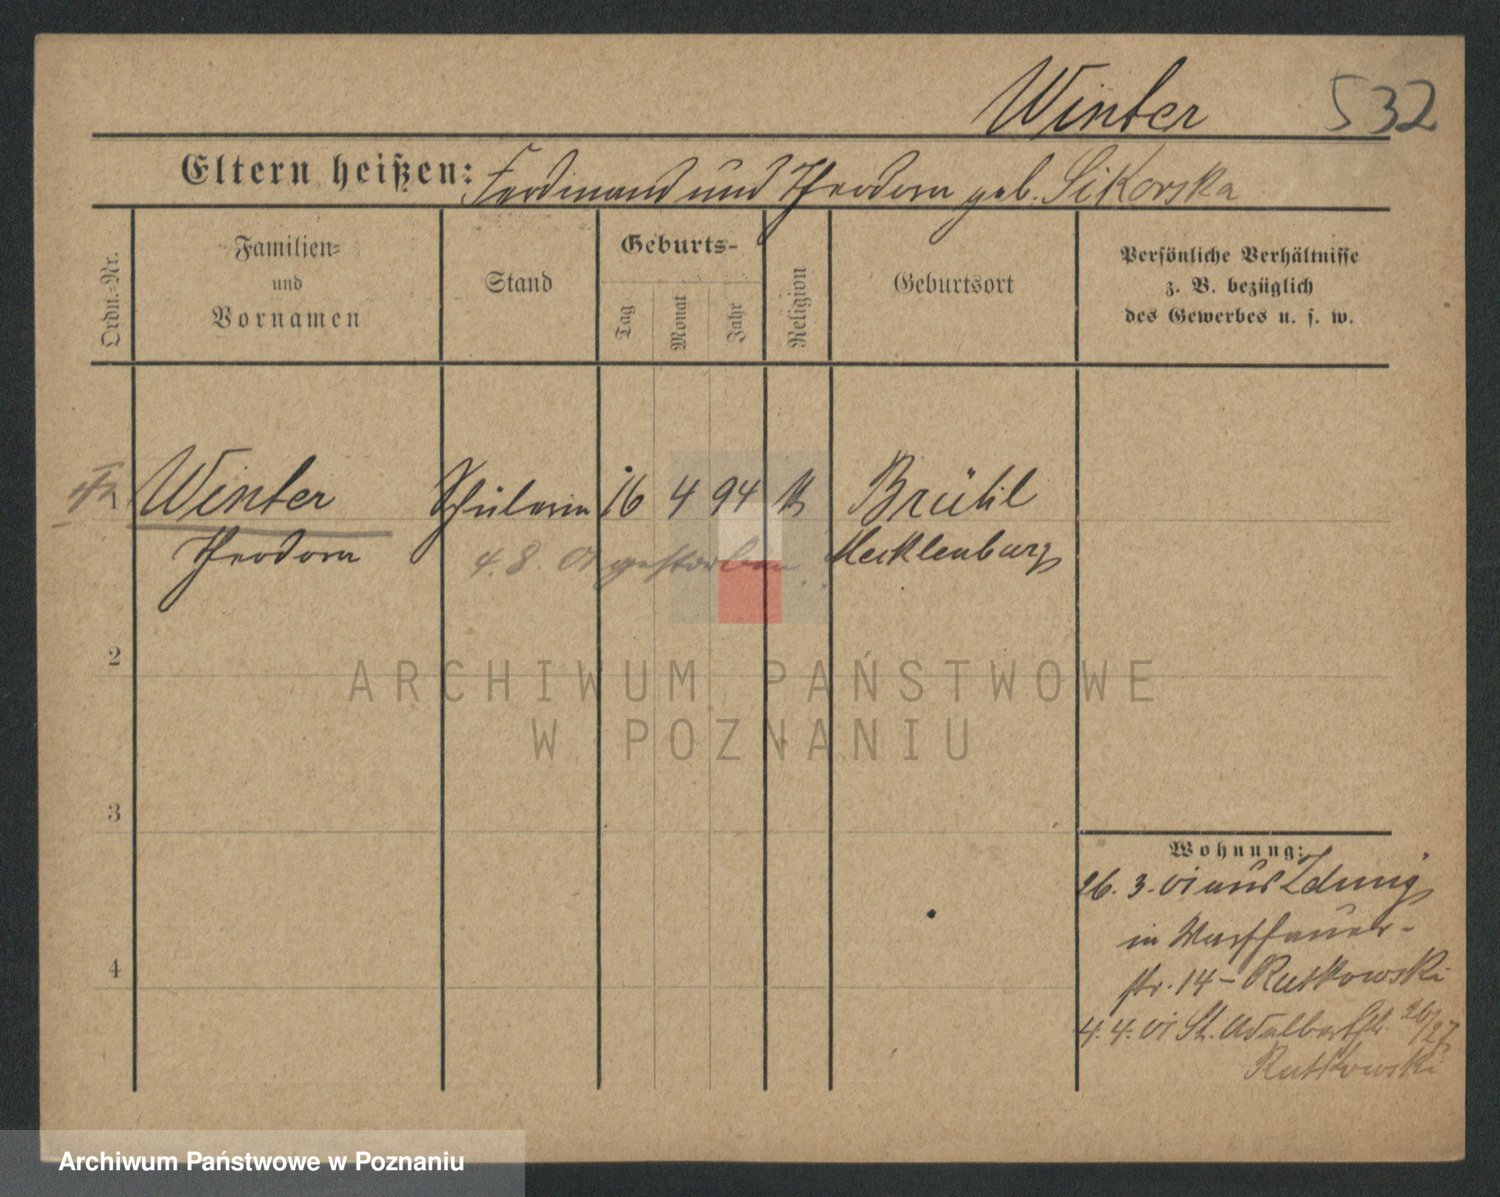 Winter 532
Eltern heißen: Ferdinand und Theodora geb. Sikorska
Ordn.-Nr.
Familien-
und
Vornamen
Stand
Geburts-
Tag
Monat
Jahr
Religion
Geburtsort
Persönliche Verhältnisse
z. B. bezüglich
des Gewerbes u. s. w.
1 Winter Schülerin 16 4 94 k Brühl
Theodora 4. 8. 01 gestorben Mecklenburg
2
ARCHIWUM PAŃSTWOWE
W POZNANIU
3
Wohnung:
26. 3. 01 aus
in Warschauer-
str. 14 - Rutkowski
4
4. 4. 01 St. Adalbertstr. 26/27
Rutkowski
Archiwum Państwowe w Poznaniu